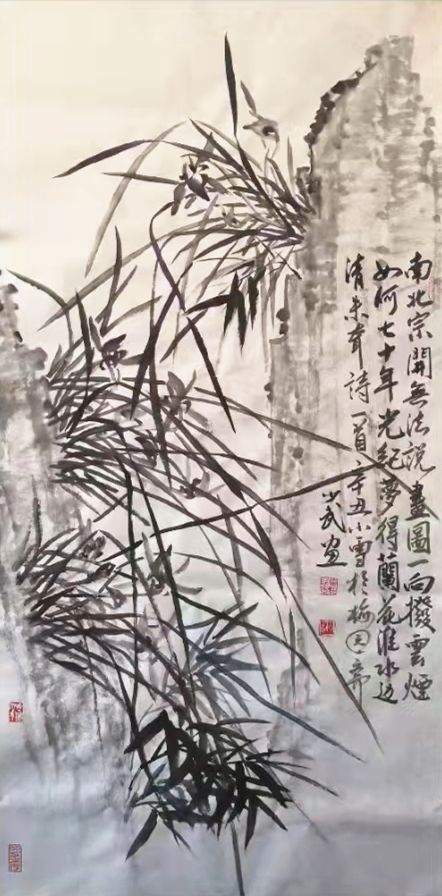 南北宗開無法説畫圖一向撥雲煙
如何七十年光紀夢得蘭花淮水边
清朱耷詩一首辛丑小雪於梅园斋
少武画